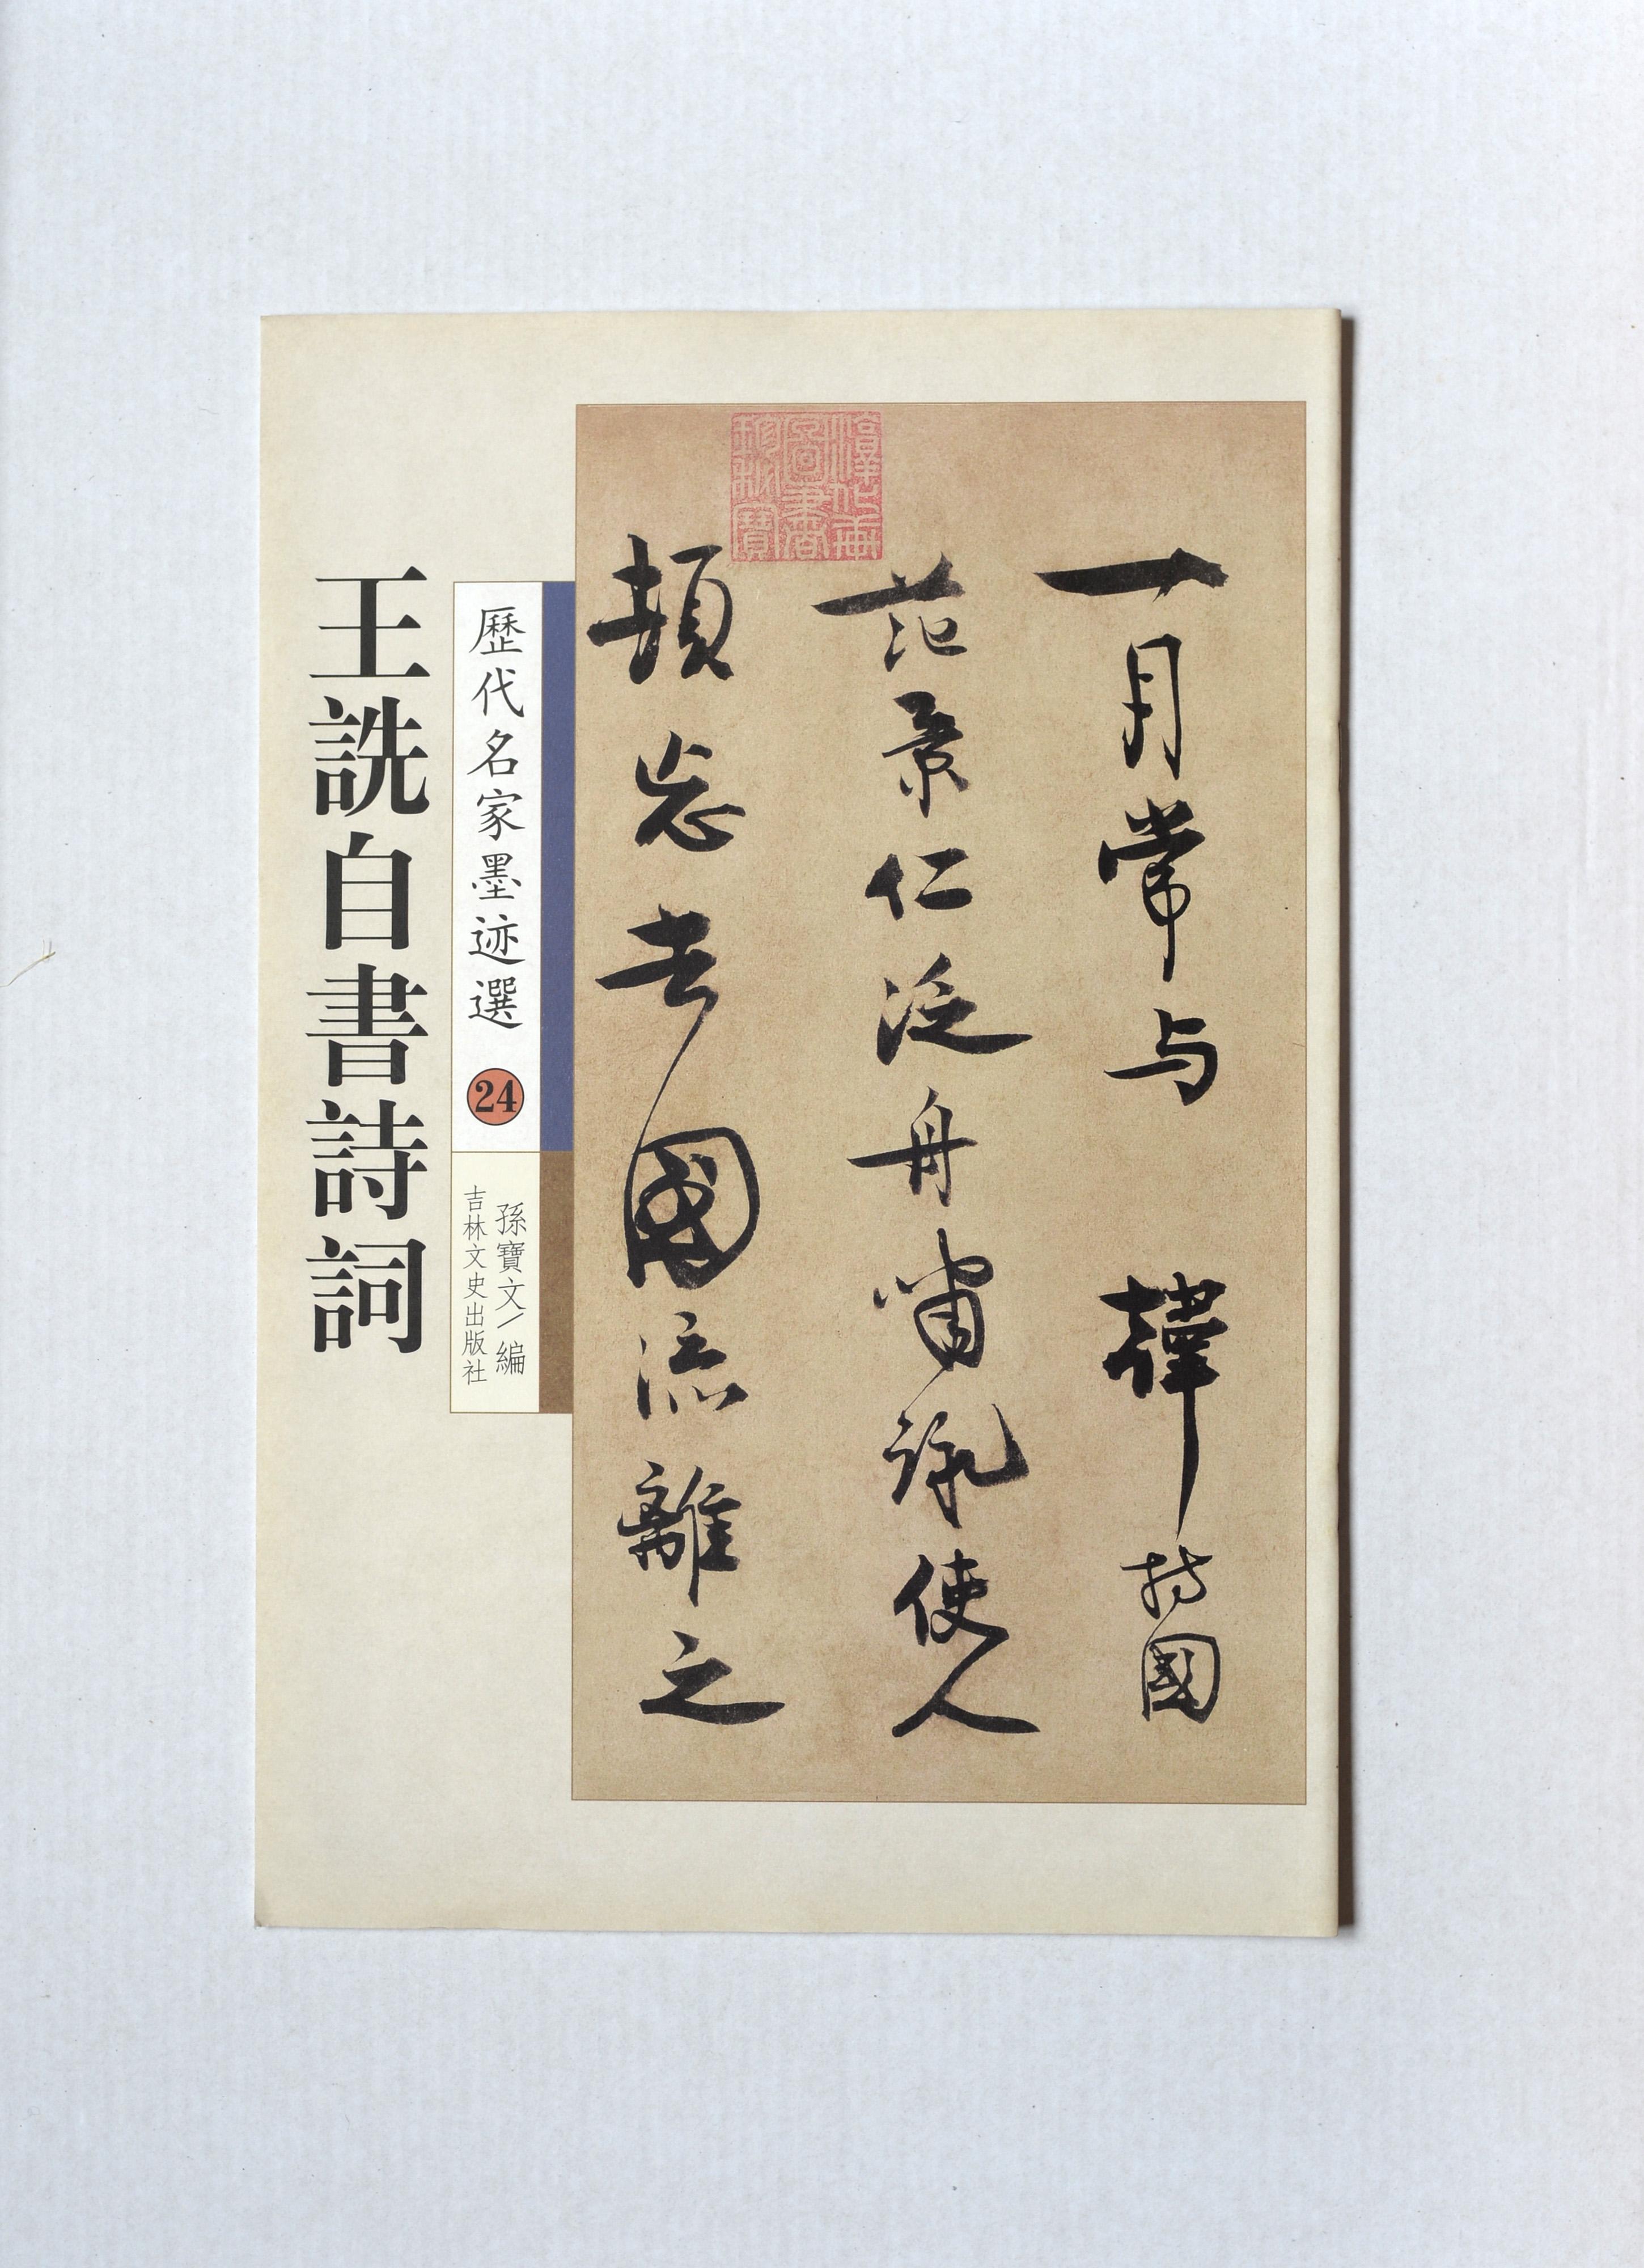 一月常与 韓持國
范景仁泛舟嘯詠使人
頓忘去國流離之
歷代名家墨迹選 24
孫寶文/編
吉林文史出版社
王詵自書詩詞